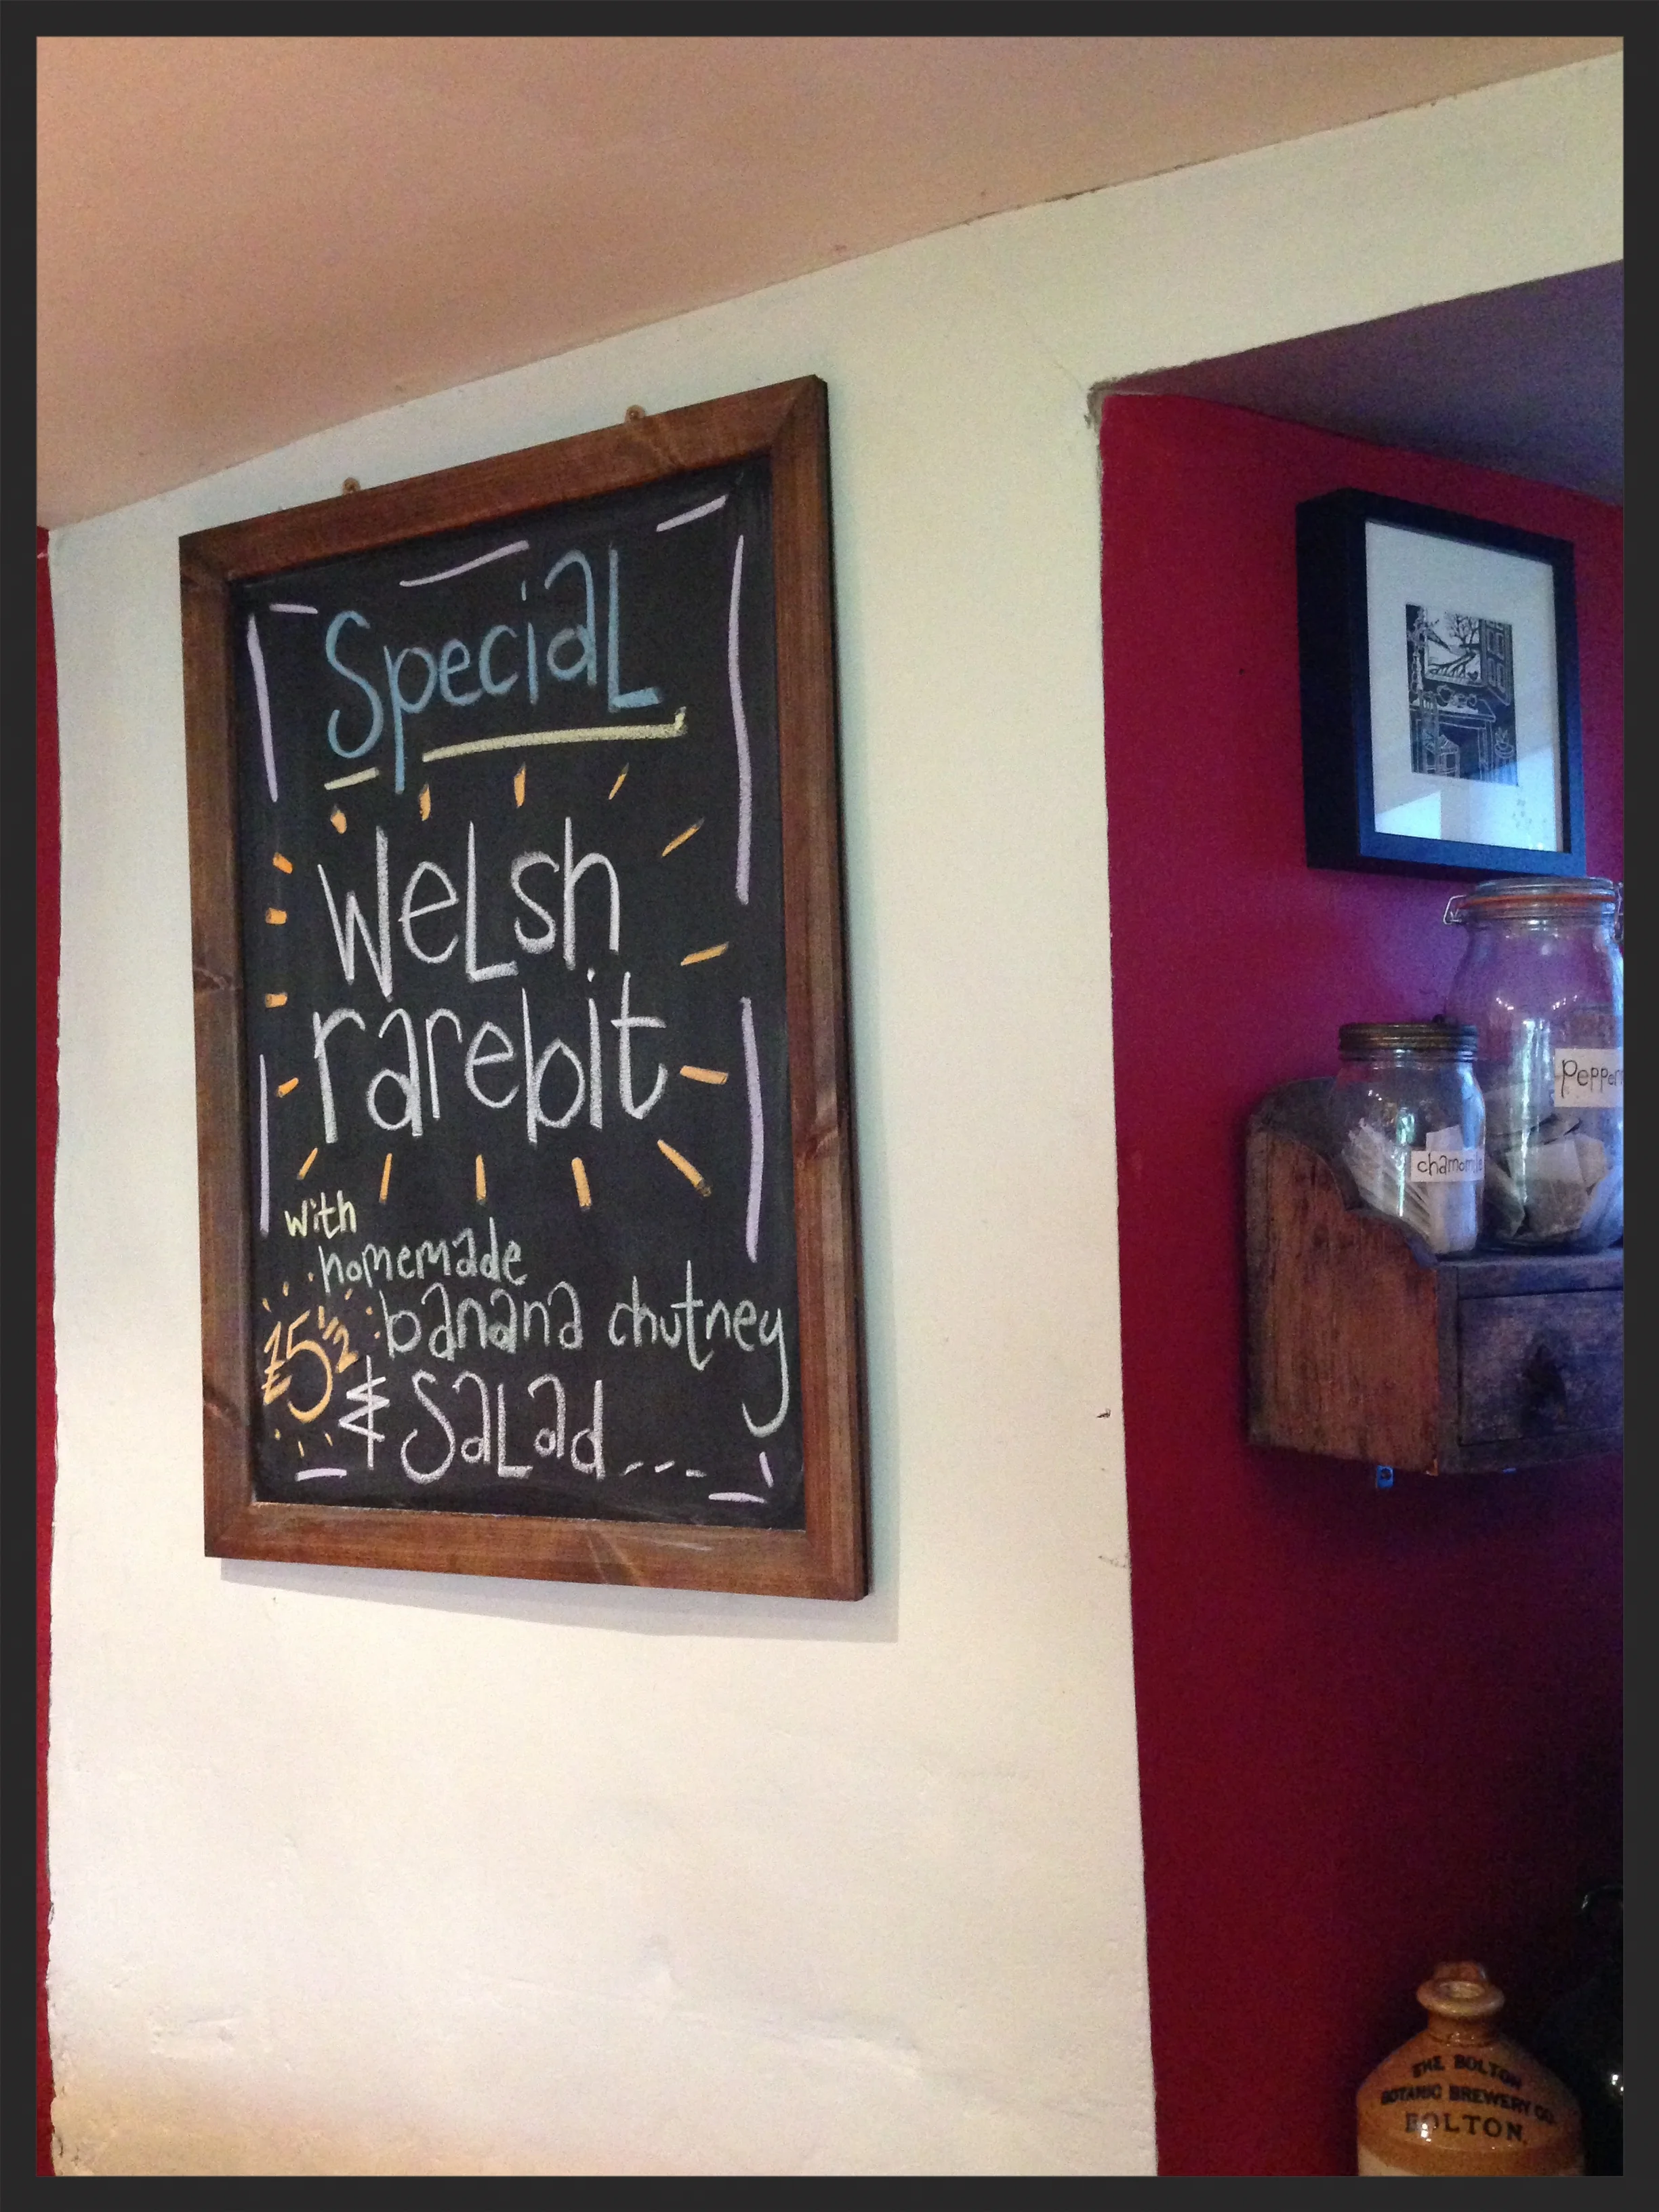 Special
Welsh
rarebit
with
homemade
banana chutney
£5½
& Salad....
chamomile
pepper
THE BOLTON
BOTANIC BREWERY CO.
BOLTON.